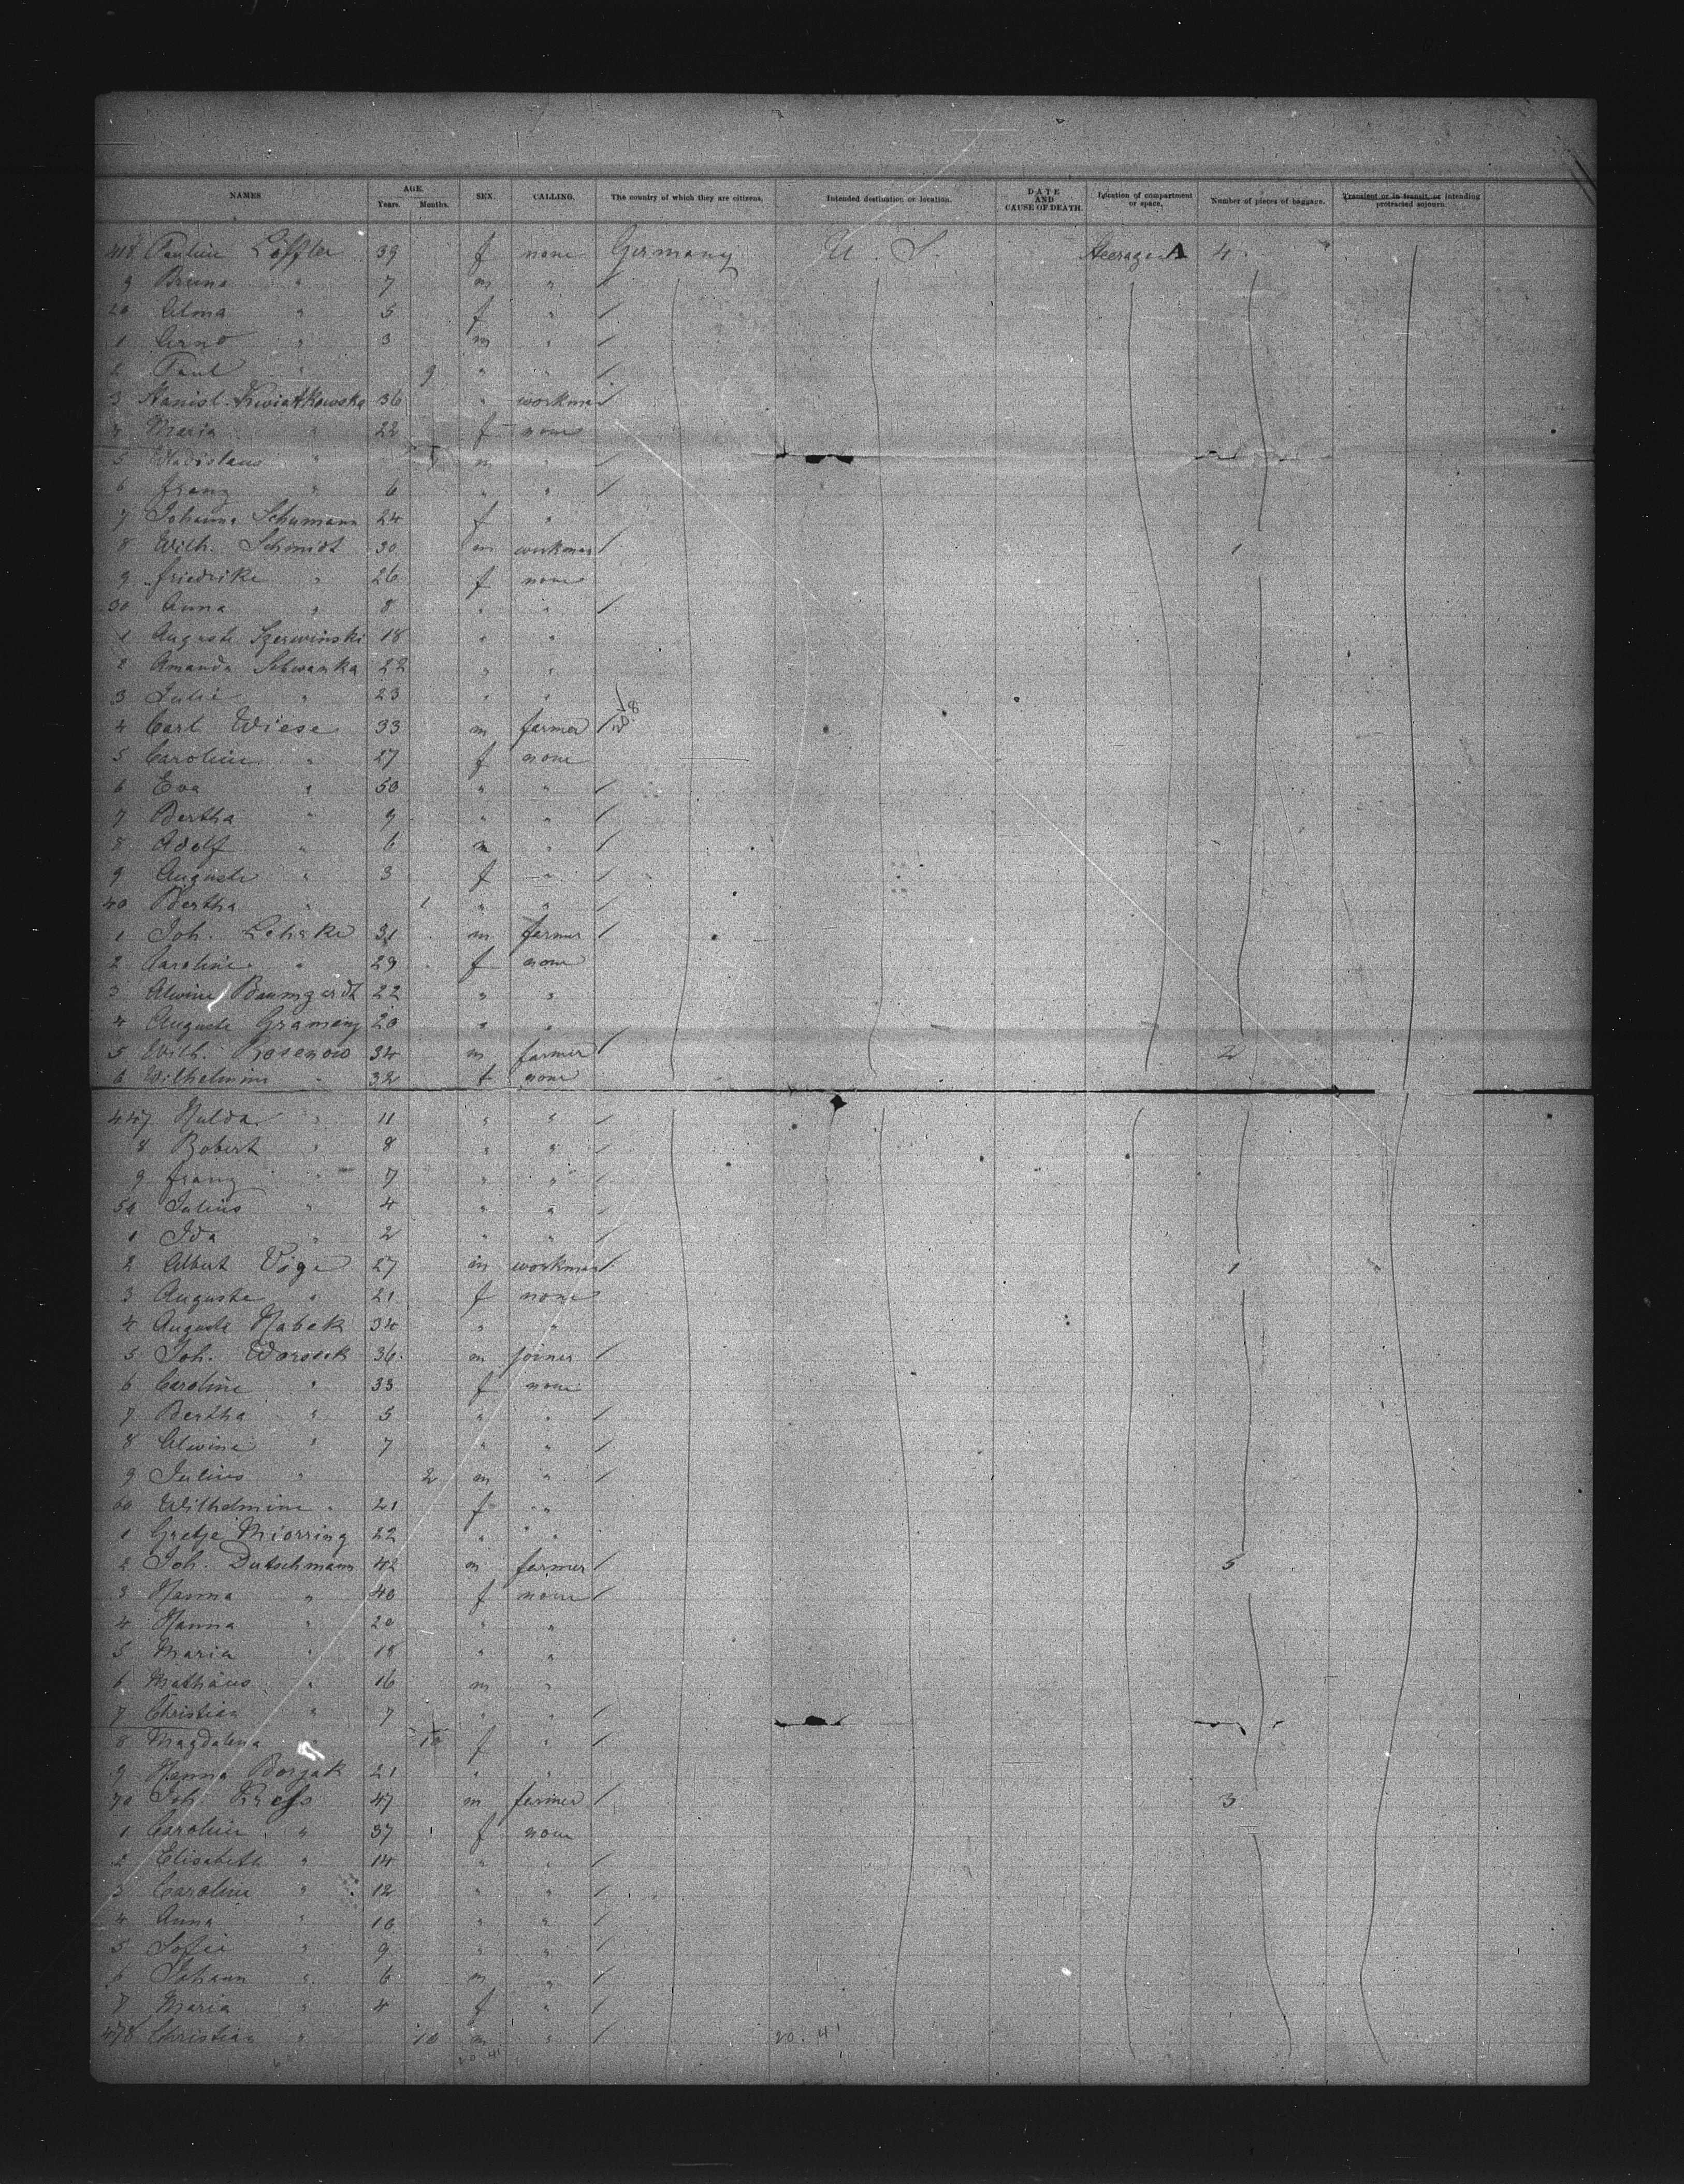 NAMES AGE. SEX. CALLING. The country of which they are citizens. Intended destination or location. DATE AND CAUSE OF DEATH. Location of compartment or space. Number of pieces of baggage. Transient or in transit, or intending protracted sojourn.
Years. Months.
418 Pauline Löffler 39 f none Germany U. S. Steerage A 4
9 Bruno " 7 m "
20 Alma " 5 f "
1 Arno " 3 m "
2 Paul " 9 " "
3 Stanisl. Kwiatkowska 36 " workman
4 Maria " 22 f none
5 Wladislaus " m "
6 Franz " 6 " "
7 Johanna Schumann 24 f "
8 Wilh. Schmidt 30 m workman 1
9 Friedrike " 26 f none
30 Anna " 8 " "
1 Auguste Szerwinski 18 " "
2 Amanda 22 " "
3 Julie " 23 " "
4 Carl Wiese 33 m farmer
5 Caroline " 27 f none
6 Eva " 50 " "
7 Bertha " 9 " "
8 Adolf " 6 m "
9 Auguste " 3 f "
40 Bertha " 1 " "
1 Joh. 31 m farmer
2 Caroline " 29 f none
3 Alwine Baumgardt 22 " "
4 Auguste 20 " "
5 Wilh. Rosenow 34 m farmer 2
6 Wilhelmine " 32 f none
447 Hulda " 11 " "
8 Robert " 8 " "
9 Franz " 7 " "
50 Julius " 4 " "
1 Ida " 2 " "
2 Albert Voge 27 m workman 1
3 Auguste " 21 f none
4 Auguste Habek 34 " "
5 Joh. 36 m joiner
6 Caroline " 33 f none
7 Bertha " 5 " "
8 Alwine " 7 " "
9 Julius " 2 m "
60 Wilhelmine " 21 f "
1 Gretje Miorring 22 " "
2 Joh. Dutschmann 42 m farmer 5
3 Hanna " 40 f none
4 Hanna " 20 " "
5 Maria " 18 " "
6 Mathäus " 16 m "
7 Christian " 7 " "
8 Magdalena " 10 f "
9 Hanna Borzak 21 " "
70 Joh. Kress 47 m farmer 3
1 Caroline " 37 f none
2 Elisabeth " 14 " "
3 Caroline " 12 " "
4 Anna " 10 " "
5 Sofie " 9 " "
6 Johann " 6 m "
7 Maria " 4 f "
478 Christian " 10 m " 20.41
20 41